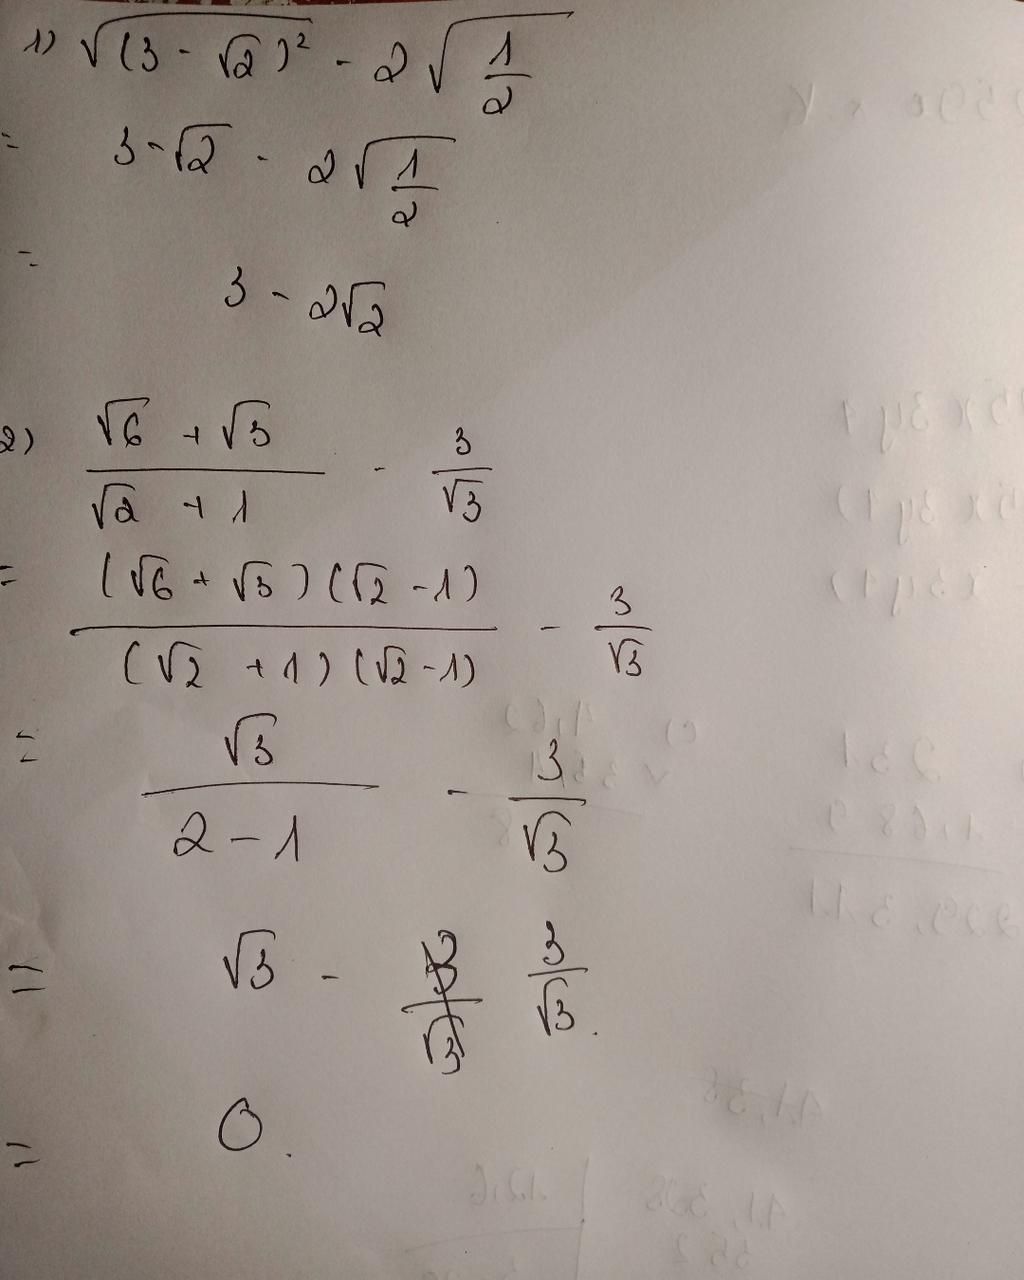 1) √(3 - √2)² - 2√1/2
= 3 - √2 - 2√1/2
= 3 - 2√2
2) (√6 + √3)/(√2 + 1) - 3/√3
= (√6 + √3)(√2 - 1)/(√2 + 1)(√2 - 1) - 3/√3
= √3/(2 - 1) - 3/√3
= √3 - 3/√3
= 0.